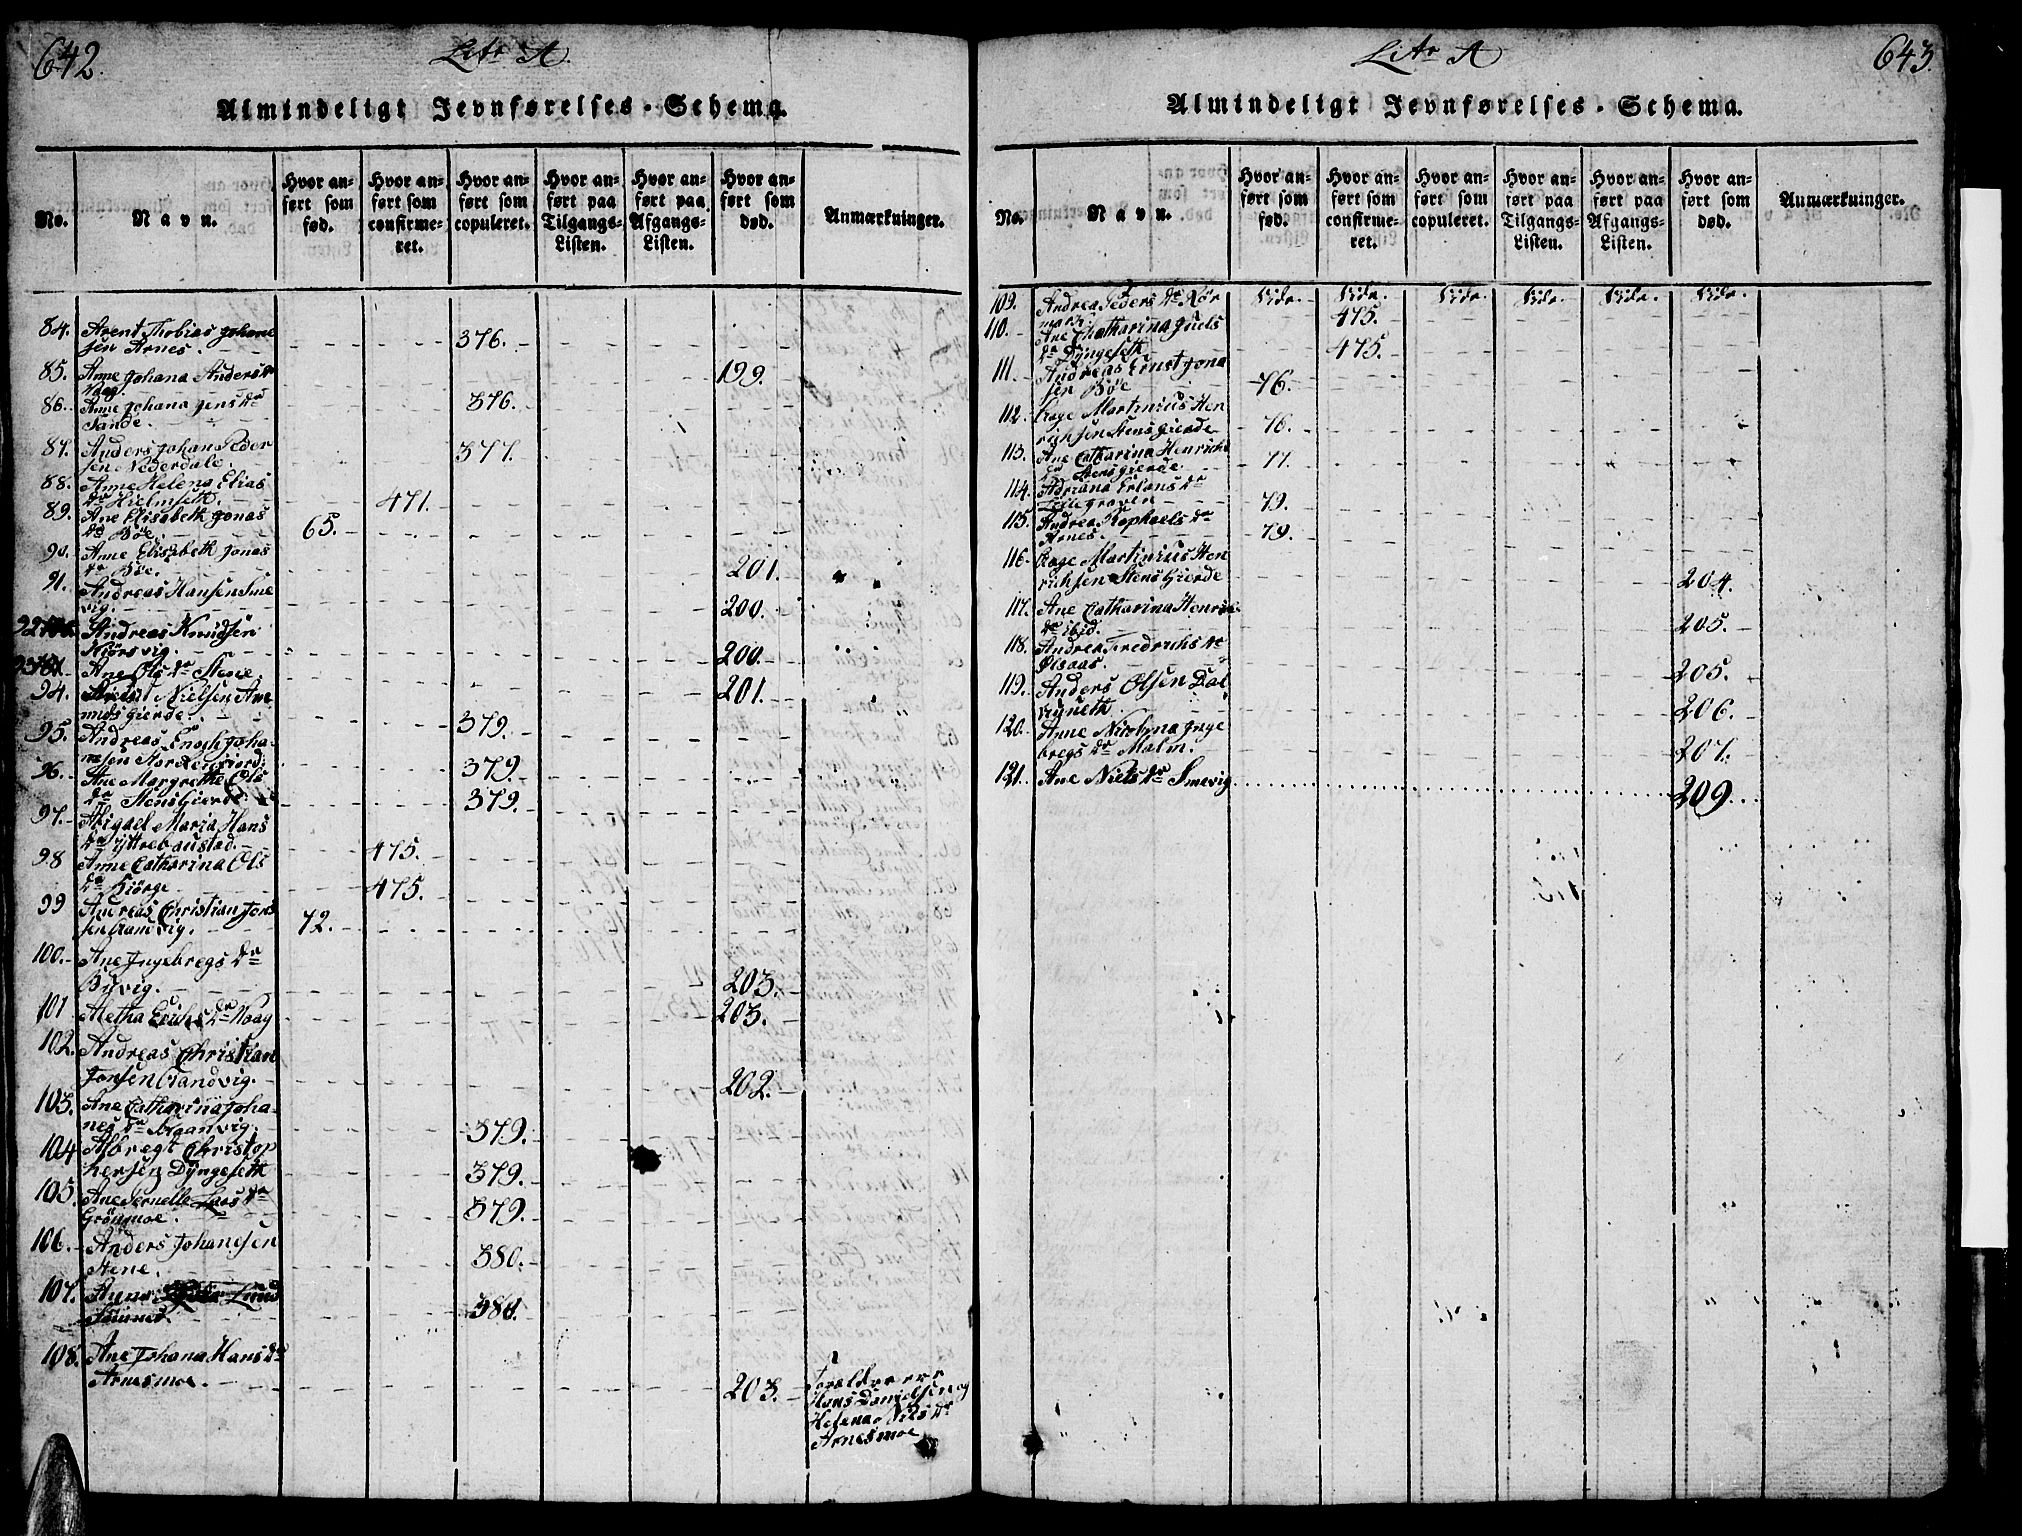 642.
Litr A.
Almindeligt Jevnførelses-Schema.
No.
Navn.
Hvor anført som fød.
Hvor anført som confirmeret.
Hvor anført som copuleret.
Hvor anført paa Tilgangs-Listen.
Hvor anført paa Afgangs-Listen.
Hvor anført som død.
Anmærkninger.
84. Arent Thobias Johane
sen Arnes. 376.
85. Anne Johana Anders dr
Vaag. 199.
86. Anne Johana Jens dr
Sande. 376.
87. Anders Johan Peder
sen Nederdale. 377.
88. Anne Helena Elias
dr Hielmseth. 471.
89. Ane Elisabeth Jonas
dr Böe. 65.
90. Anne Elisabeth Jonas
dr Böe. 201.
91. Andreas Hansen Sme
vig. 200.
92. Andreas Knudsen
Kiörsvig. 200.
93. Ane Ols dr Stene 201.
94. Nielsen Are
midsgierde. 379.
95. Andreas Enoch Joha-
nesen 379.
96. Ane Margrethe Ols
dr Stensgierde. 379.
97. Abigael Maria Hans
dr Yttrebaustad. 475.
98 Anne Catharina Ols
dr Kiörge 475.
99 Andreas Christian Jons
sen 72.
100. Ane Ingebregs dr
Byvig. 203.
101 Aletha Erichs dr Vaag 203.
102. Andreas Christian
Jonsen 202.
103. Ane Catharina Joha-
nes dr 379.
104 Albregt Christop
hersen Dyngeseth 379.
105. Ane Pernelle Lars dr
Grönmoe. 379.
106. Anders Johanesen
Stene. 380.
107. Anne Lund
380.
108. Ane Johana Hans dr
Arnesmoe. 203.
Foreldre ere
Hans Danielsen og
Helena Nils dr
Arnesmoe
Litr A
643.
Almindeligt Jevnførelses-Schema.
No.
Navn.
Hvor anført som fød.
Hvor anført som confirmeret.
Hvor anført som copuleret.
Hvor anført paa Tilgangs-Listen.
Hvor anført paa Afgangs-Listen.
Hvor anført som død.
Anmærkninger.
Side. Side. Side. Side. Side. Side.
109. Andrea Peders dr Kör
mark 475.
110. Ane Chatharina Juels
dr Dyngeseth 475.
111. Andreas Ernst Jona
sen Böe 76.
112. Aage Martinius Hen
richsen Stensgierde 76.
113. Ane Catharina Henrichs
dr Stensgierde. 77.
114. Adriana Erlans dr
Tellegraven 79.
115. Andrea Raphaels dr
Arnes. 79.
116. Aage Martinius Hen
richsen Stensgierde 204.
117. Ane Catharina Henrichs
dr ibid. 205.
118. Andrea Fredrichs dr
Olsaas. 205.
119. Anders Olsen Dal
206.
120. Anne Nicolina Inge
bregs dr Malm. 207.
121. Ane Niels dr Smevig 209.